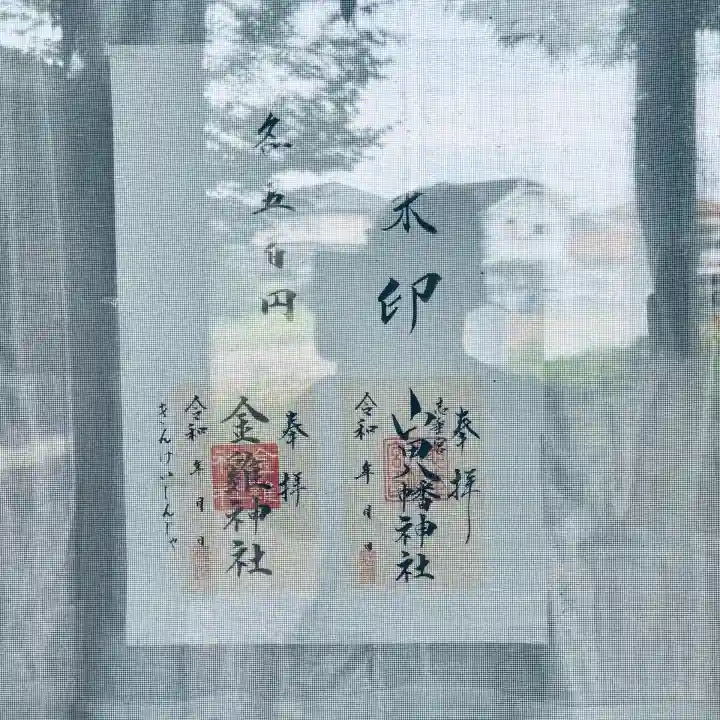 朱印
各五百円
奉拝
志重宮
山田八幡神社
令和 年 月 日
奉拝
金雞神社
令和 年 月 日
きんけいじんじゃ